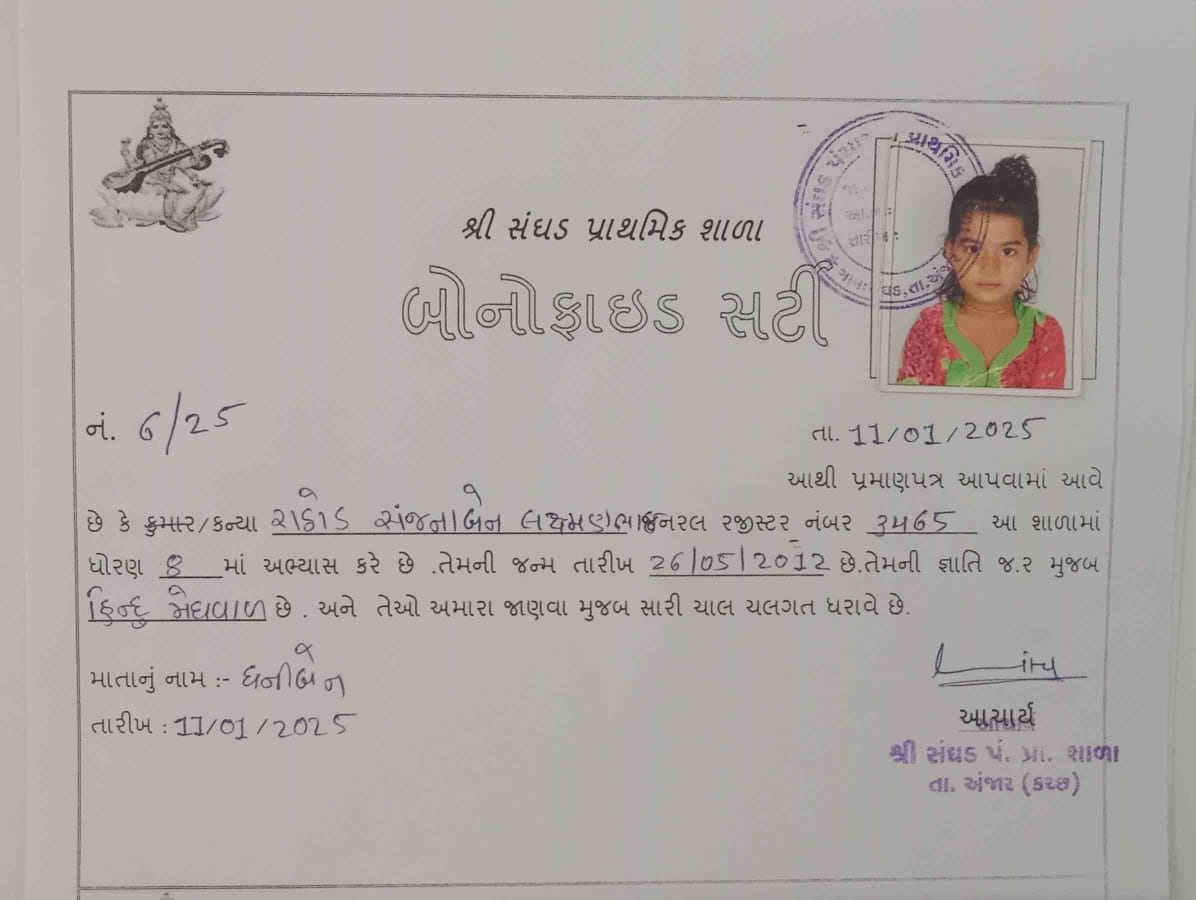 શ્રી સંઘડ પ્રાથમિક શાળા
બોનોફાઇડ સર્ટી
નં. 6/25
તા. 11/01/2025
આથી પ્રમાણપત્ર આપવામાં આવે
છે કે કુમાર/કન્યા રાઠોડ સંજનાબેન લક્ષ્મણભાઇ જનરલ રજીસ્ટર નંબર 3465 આ શાળામાં
ધોરણ 8 માં અભ્યાસ કરે છે .તેમની જન્મ તારીખ 26/05/2012 છે.તેમની જ્ઞાતિ જ.ર મુજબ
હિન્દુ મેઘવાળ છે . અને તેઓ અમારા જાણવા મુજબ સારી ચાલ ચલગત ધરાવે છે.
માતાનું નામ :- ધનીબેન
તારીખ : 11/01/2025
આચાર્ય
શ્રી સંઘડ પં. પ્રા. શાળા
તા. અંજાર (કચ્છ)